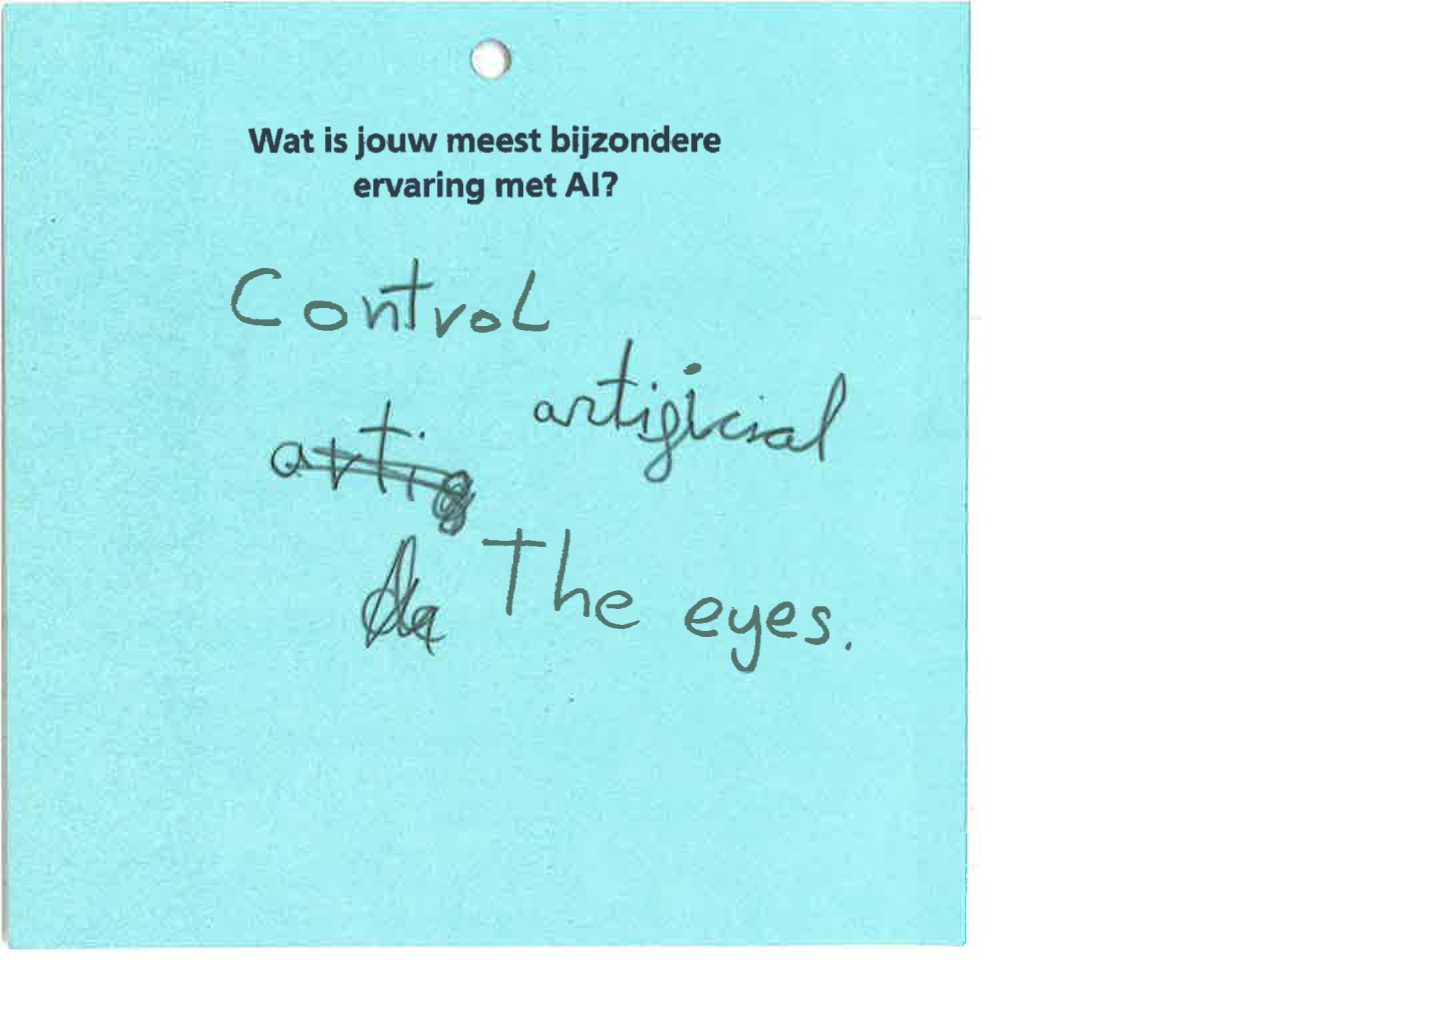 Wat is jouw meest bijzondere
ervaring met AI?
Control
artificial
The eyes.